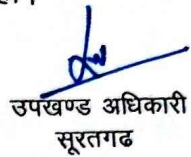 उपखण्ड अधिकारी
सूरतगढ